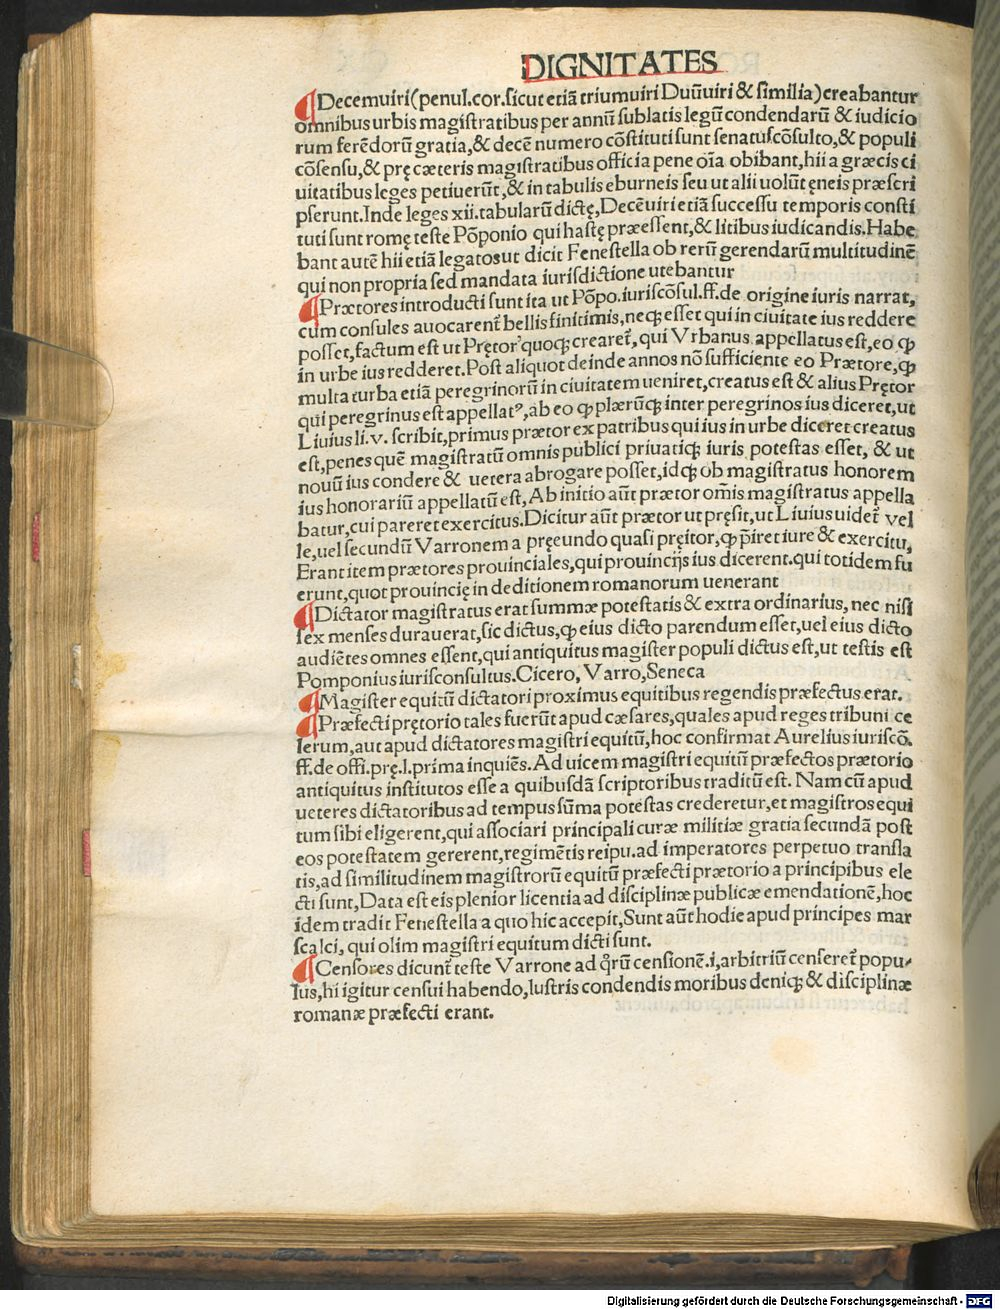 DIGNITATES
¶Decemuiri(penul.cor.sicut etiã triumuiri Duũuiri & similia)creabantur
omnibus urbis magistratibus per annũ sublatis legũ condendarũ & iudicio
rum ferẽdorũ gratia,& decẽ numero cõstituti sunt senatuscõsulto,& populi
cõsensu,& prę cæteris magistratibus officia pene oĩa obibant,hii a græcis ci
uitatibus leges petiuerũt,& in tabulis eburneis seu ut alii uolũt ęneis præscri
pserunt.Inde leges xii.tabularũ dictę,Decẽuiri etiã successu temporis consti
tuti sunt romę teste Põponio qui hastę præessent,& litibus iudicandis.Habe
bant autẽ hii etiã legatos ut dicit Fenestella ob rerũ gerendarũ multitudinẽ
qui non propria sed mandata iurisdictione utebantur
¶Prætores introducti sunt ita ut Põpo.iuriscõsul.ff.de origine iuris narrat,
cum consules auocarent̃ bellis finitimis,neqꝫ esset qui in ciuitate ius reddere
posset,factum est ut Prętor quoqꝫ crearet̃,qui Vrbanus appellatus est,eo ꝙ
in urbe ius redderet.Post aliquot deinde annos nõ sufficiente eo Prætore,ꝙ
multa turba etiã peregrinorũ in ciuitatem ueniret,creatus est & alius Prętor
qui peregrinus est appellatꝰ,ab eo ꝙ plærũqꝫ inter peregrinos ius diceret,ut
Liuius li.v. scribit,primus prætor ex patribus qui ius in urbe diceret creatus
est,penes quẽ magistratũ omnis publici priuatiqꝫ iuris potestas esset, & ut
nouũ ius condere & uetera abrogare posset,idqꝫ ob magistratus honorem
ius honorariũ appellatũ est,Ab initio aũt prætor om̃is magistratus appella
batur,cui pareret exercitus.Dicitur aũt prætor ut pręsit,ut Liuius uidet̃ vel
le,uel secundũ Varronem a pręeundo quasi pręitor,ꝙ p̃iret iure & exercitu,
Erant item prætores prouinciales,qui prouincijs ius dicerent.qui totidem fu
erunt,quot prouincię in deditionem romanorum uenerant
¶Dictator magistratus erat summæ potestatis & extra ordinarius, nec nisi
sex menses durauerat,sic dictus,ꝙ eius dicto parendum esset,uel eius dicto
audiẽtes omnes essent,qui antiquitus magister populi dictus est,ut testis est
Pomponius iurisconsultus.Cicero, Varro,Seneca
¶Magister equitũ dictatori proximus equitibus regendis præfectus erat.
¶Præfecti prętorio tales fuerũt apud cæsares,quales apud reges tribuni ce
lerum,aut apud dictatores magistri equitũ,hoc confirmat Aurelius iuriscõ.
ff.de offi.prę.l.prima inquiẽs.Ad uicem magistri equitũ præfectos prætorio
antiquitus institutos esse a quibusdã scriptoribus traditũ est. Nam cũ apud
ueteres dictatoribus ad tempus sũma potestas crederetur,et magistros equi
tum sibi eligerent,qui associari principali curæ militiæ gratia secundã post
eos potestatem gererent,regimẽtis reipu.ad imperatores perpetuo transla
tis,ad similitudinem magistrorũ equitũ præfecti prætorio a principibus ele
cti sunt,Data est eis plenior licentia ad disciplinæ publicæ emendationẽ,hoc
idem tradit Fenestella a quo hic accepit,Sunt aũt hodie apud principes mar
scalci, qui olim magistri equitum dicti sunt.
¶Censores dicunt̃ teste Varrone ad q̃rũ censionẽ.i,arbitriũ censeret̃ popu-
lus,hi igitur censui habendo,lustris condendis moribus deniqꝫ & disciplinæ
romanæ præfecti erant.
Digitalisierung gefördert durch die Deutsche Forschungsgemeinschaft - DFG